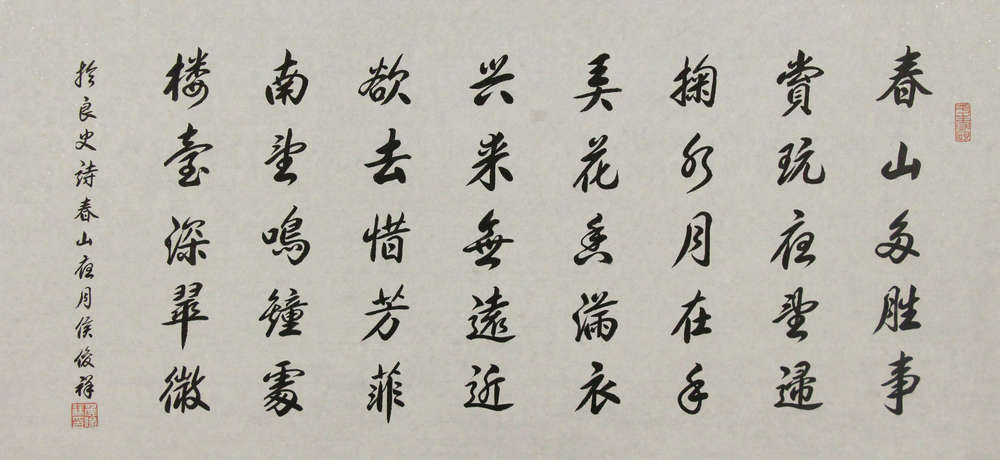 春山多胜事
賞玩夜望歸
掬水月在手
弄花香滿衣
兴来無遠近
欲去惜芳菲
南望鳴鐘處
楼臺深翠微
於良史詩春山夜月侯俊祥